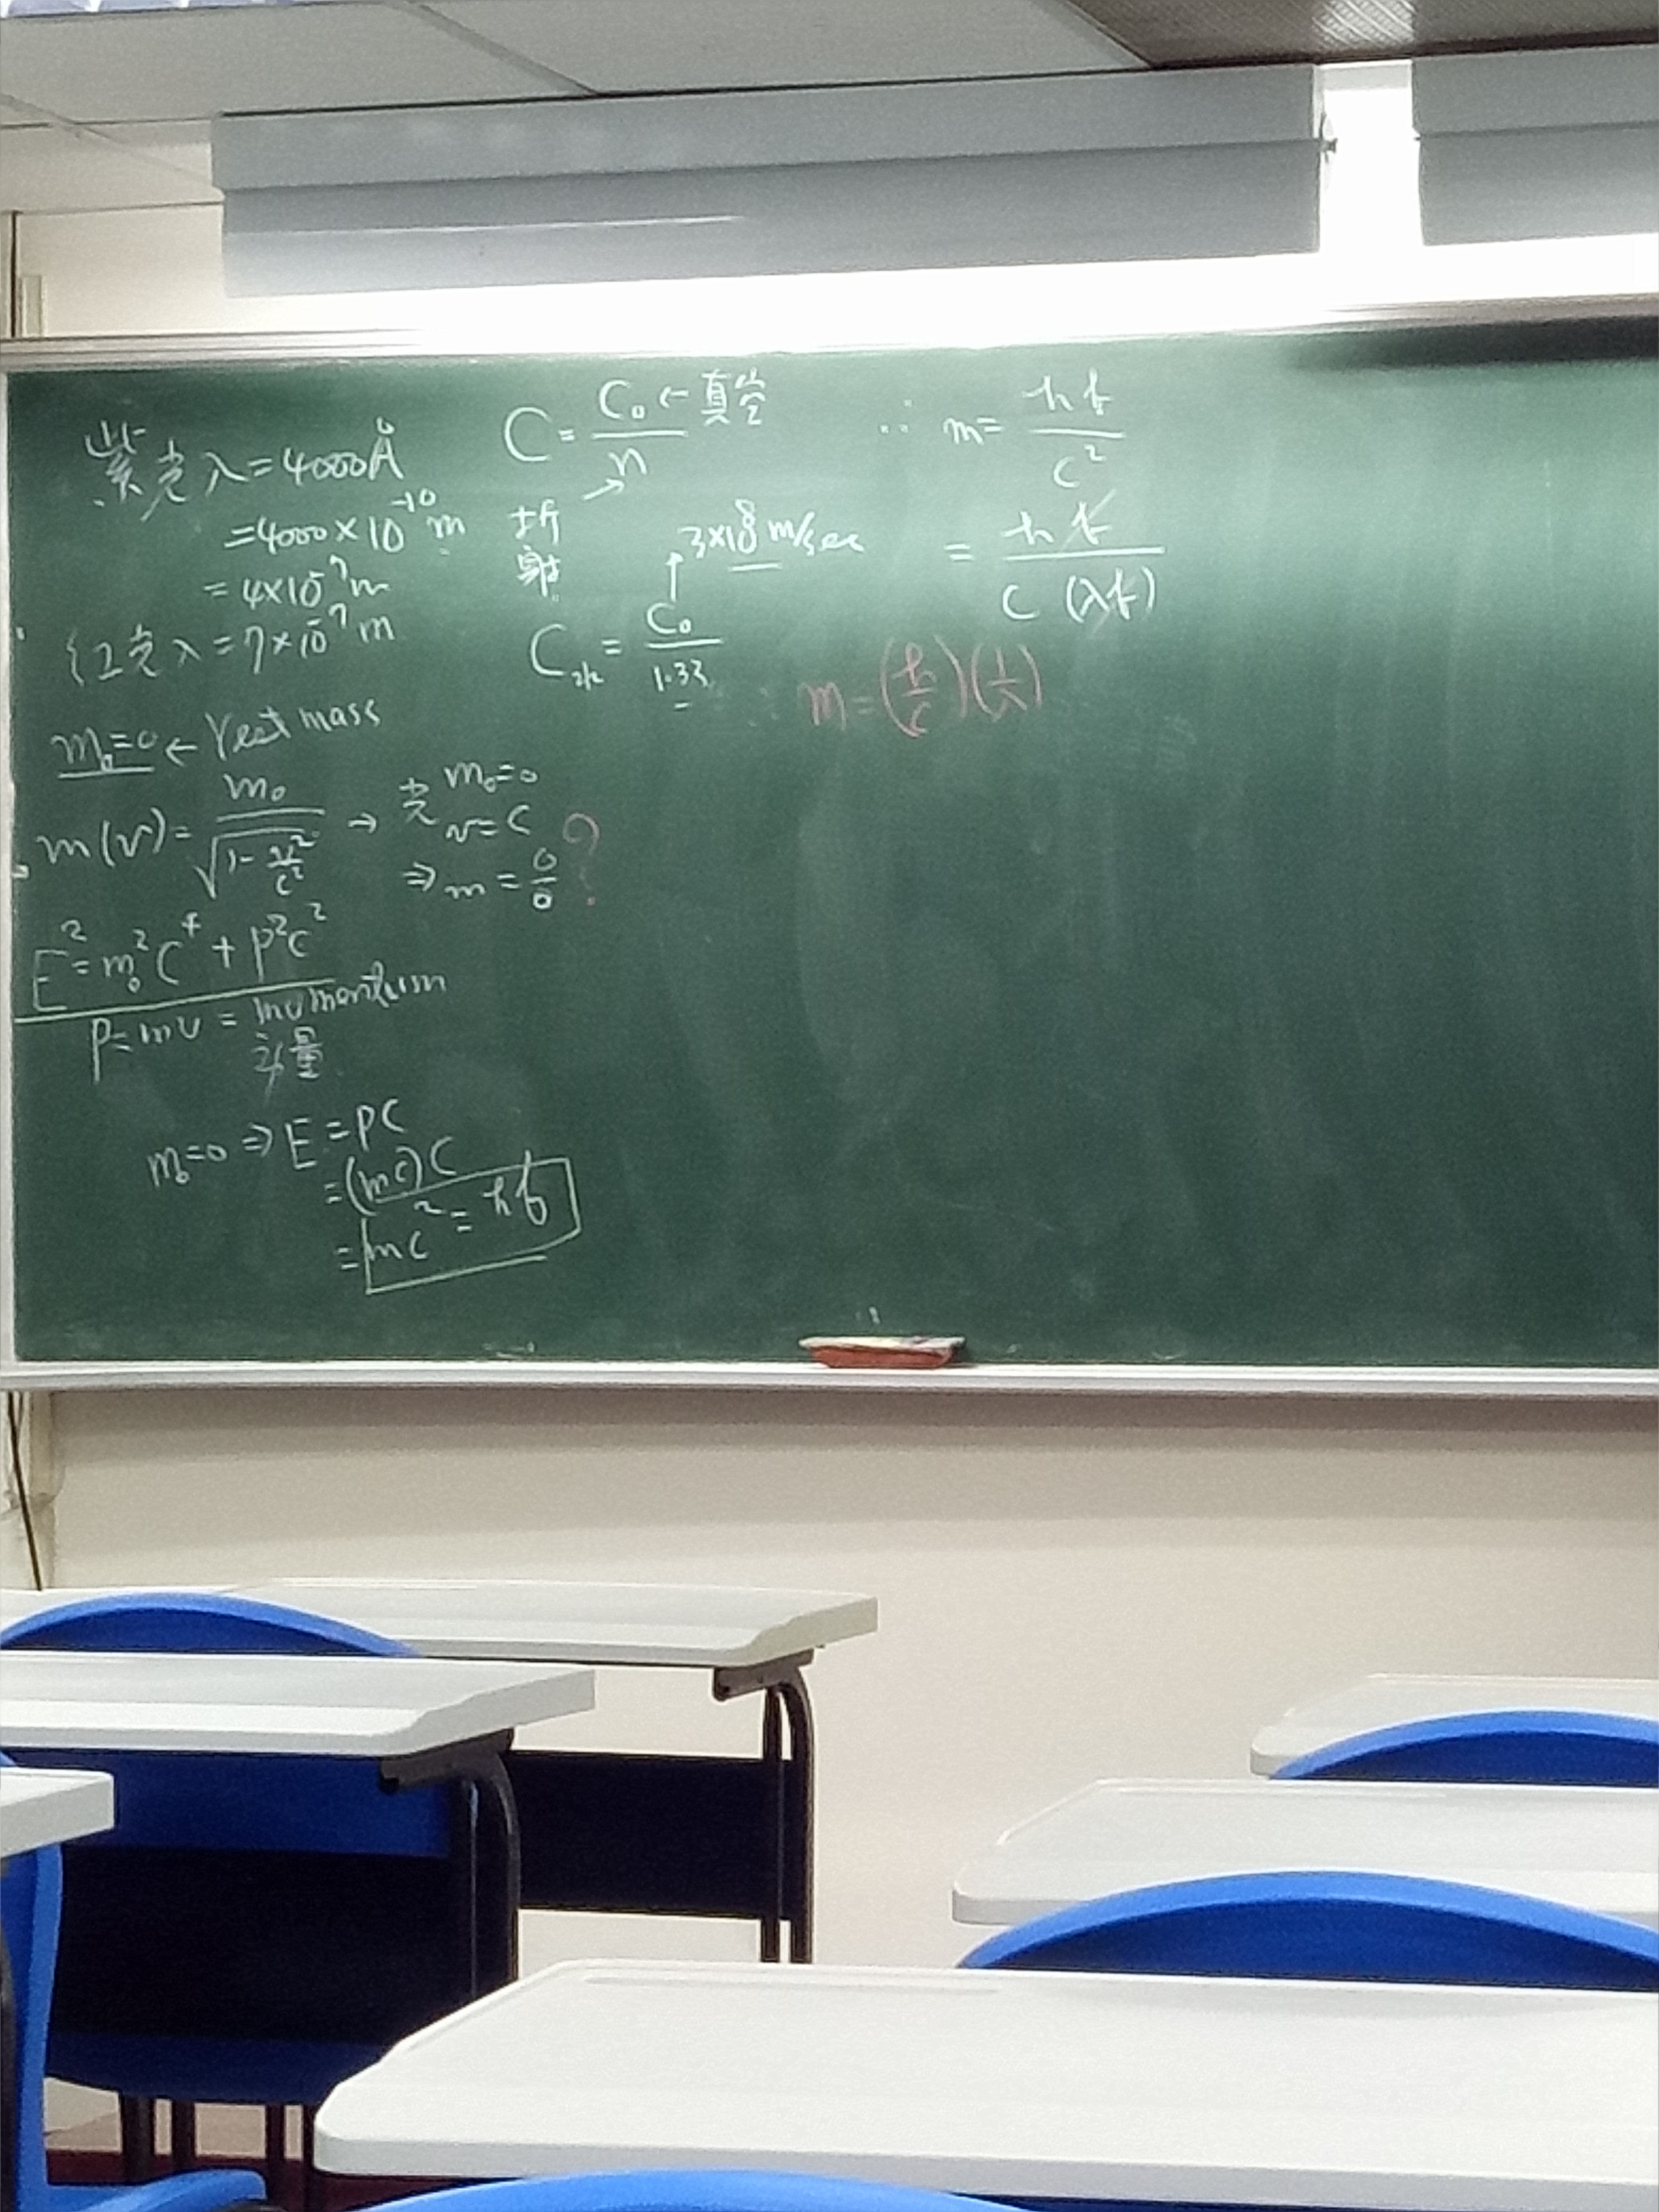 紫光 λ = 4000Å
= 4000 × 10⁻¹⁰ m
= 4×10⁻⁷ m
红光 λ = 7×10⁻⁷ m
m₀=0 ← rest mass
m(v) = m₀ / √(1 - v²/c²) → 光 m₀=0
v=c
⇒ m = 0/0 ?
E² = m₀²C⁴ + p²c²
p = mv = momentum
动量
m₀=0 ⇒ E = pc
= (mc)c
= mc² = hf
C = C₀ / n ← 真空
折射
3×10⁸ m/sec
C水 = C₀ / 1.33
∴ m = hf / c²
= hf / c(λf)
m = (h/c)(1/λ)